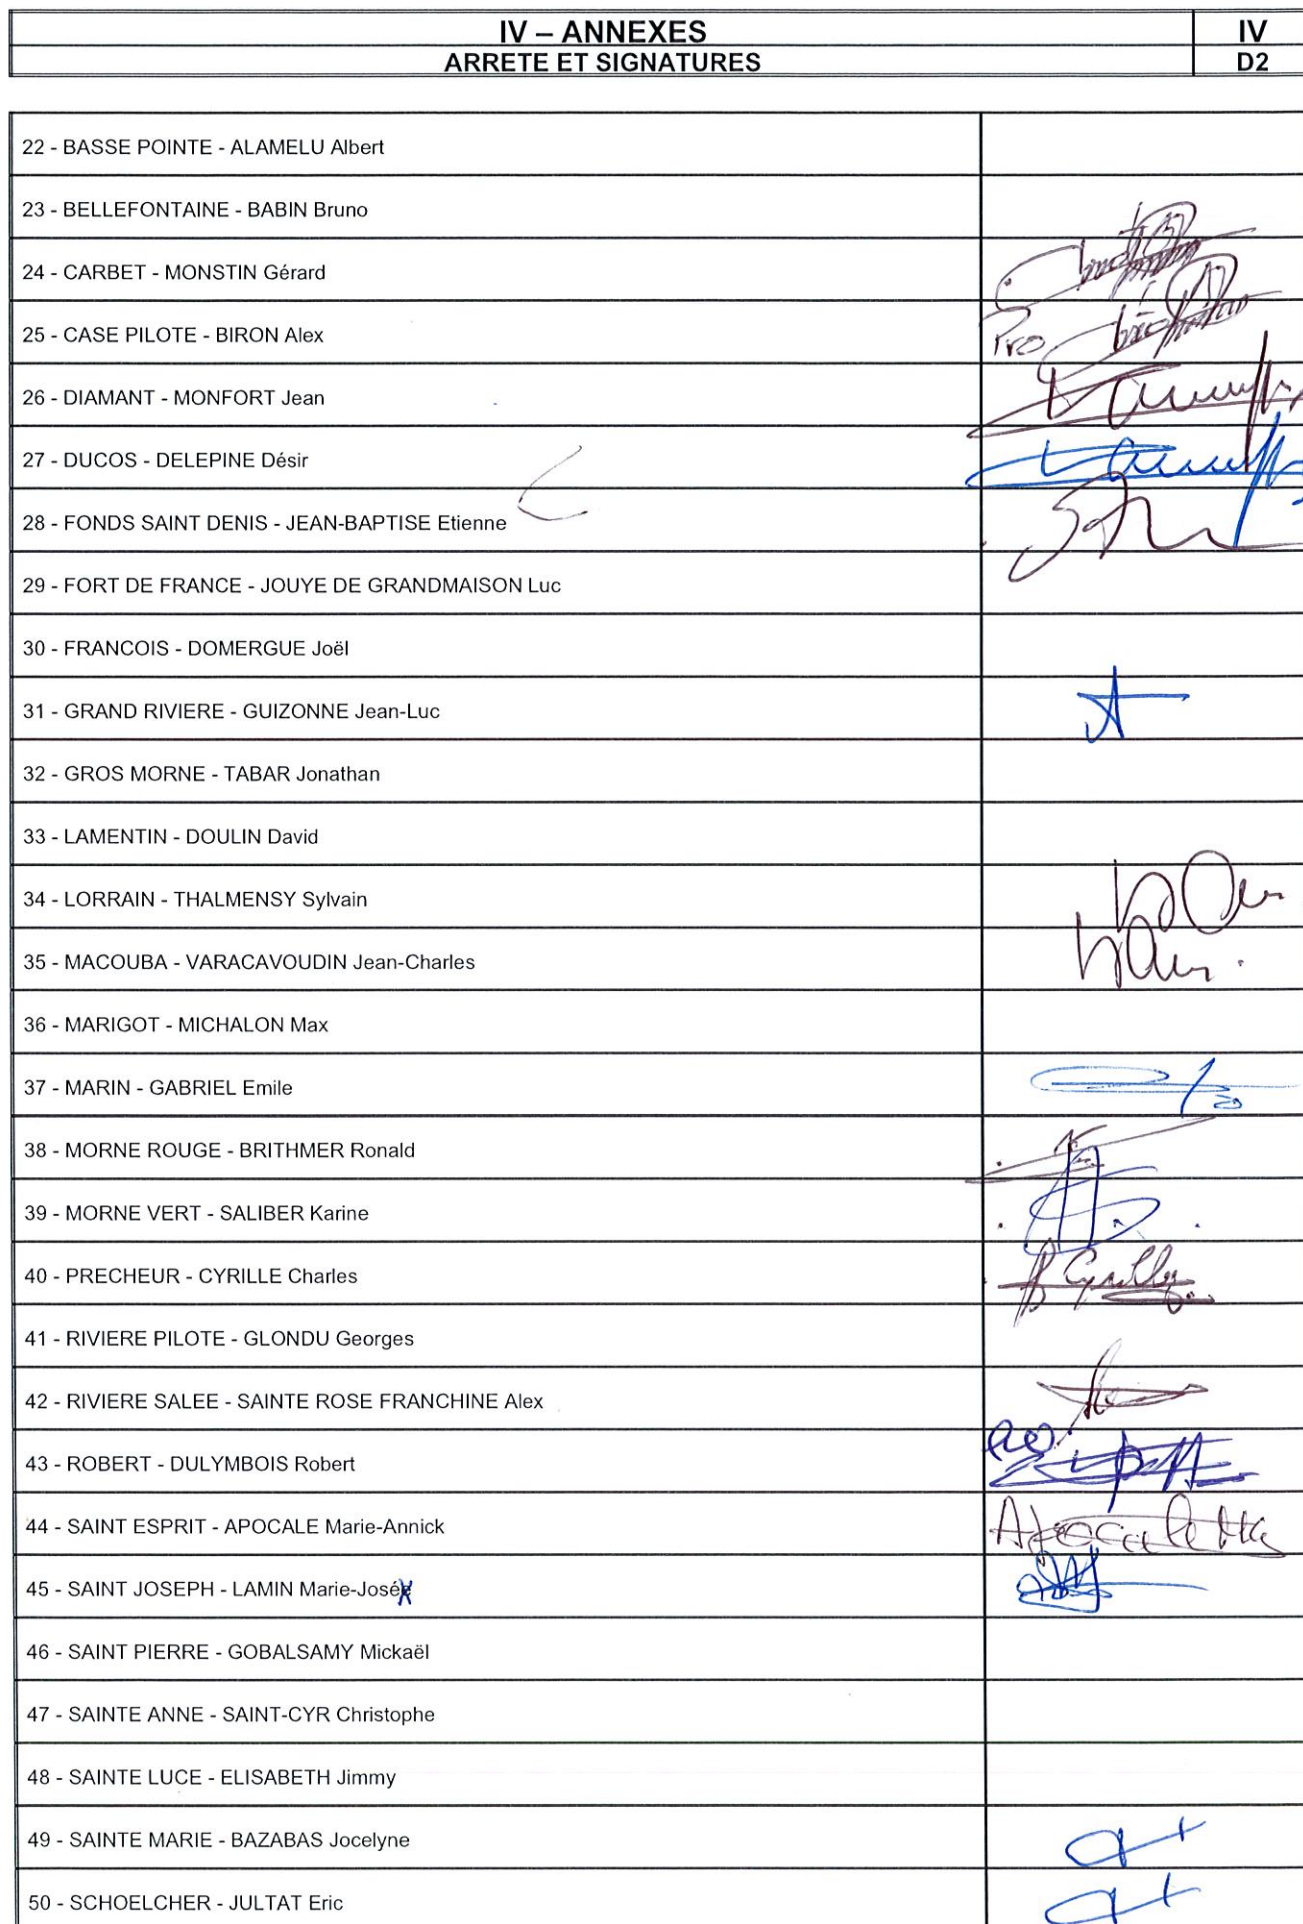 IV – ANNEXES
IV
ARRETE ET SIGNATURES
D2
22 - BASSE POINTE - ALAMELU Albert
23 - BELLEFONTAINE - BABIN Bruno
24 - CARBET - MONSTIN Gérard
25 - CASE PILOTE - BIRON Alex
Pro
26 - DIAMANT - MONFORT Jean
27 - DUCOS - DELEPINE Désir
28 - FONDS SAINT DENIS - JEAN-BAPTISE Etienne
29 - FORT DE FRANCE - JOUYE DE GRANDMAISON Luc
30 - FRANCOIS - DOMERGUE Joël
31 - GRAND RIVIERE - GUIZONNE Jean-Luc
32 - GROS MORNE - TABAR Jonathan
33 - LAMENTIN - DOULIN David
34 - LORRAIN - THALMENSY Sylvain
35 - MACOUBA - VARACAVOUDIN Jean-Charles
36 - MARIGOT - MICHALON Max
37 - MARIN - GABRIEL Emile
38 - MORNE ROUGE - BRITHMER Ronald
39 - MORNE VERT - SALIBER Karine
40 - PRECHEUR - CYRILLE Charles
Cyrille
41 - RIVIERE PILOTE - GLONDU Georges
42 - RIVIERE SALEE - SAINTE ROSE FRANCHINE Alex
43 - ROBERT - DULYMBOIS Robert
44 - SAINT ESPRIT - APOCALE Marie-Annick
Apocale
45 - SAINT JOSEPH - LAMIN Marie-Josée
46 - SAINT PIERRE - GOBALSAMY Mickaël
47 - SAINTE ANNE - SAINT-CYR Christophe
48 - SAINTE LUCE - ELISABETH Jimmy
49 - SAINTE MARIE - BAZABAS Jocelyne
50 - SCHOELCHER - JULTAT Eric